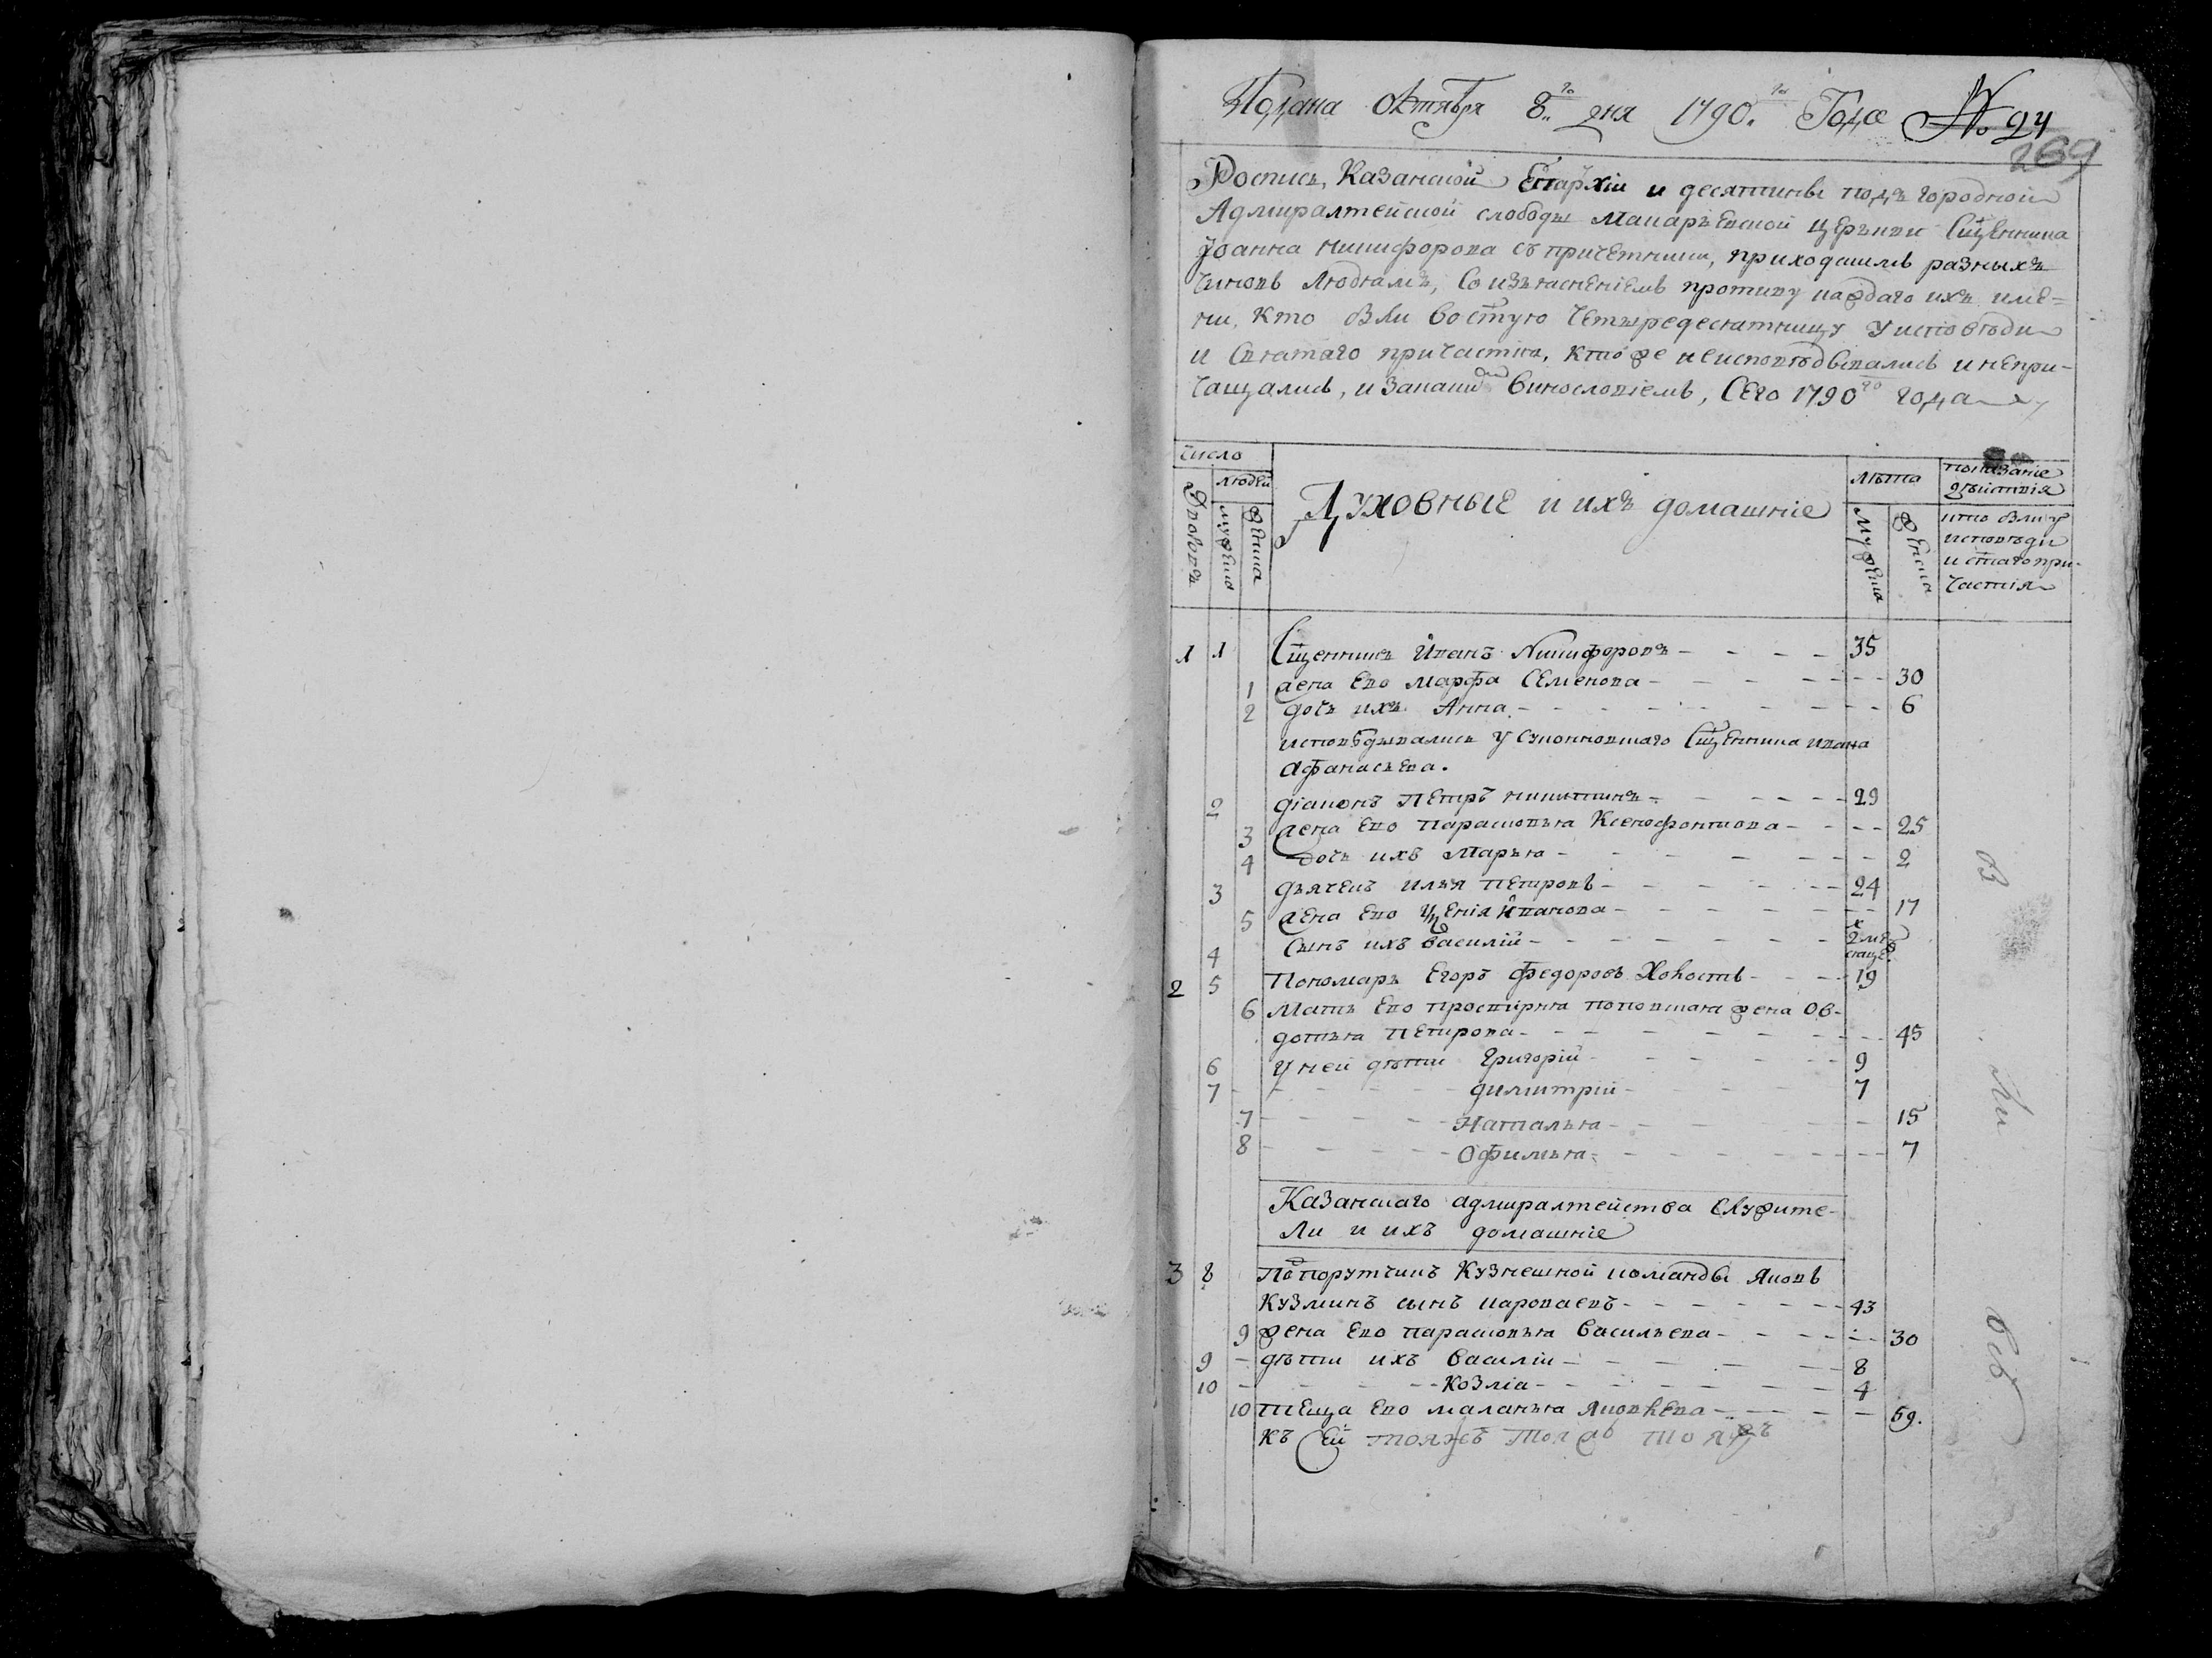 Подана октября 8го дня 1790го Года № 94
269
Роспись, Казанской Епархіи и десятины подъ городной
Адмиралтейской слободы Макарьевской церькви Сщенника
Іоанна никифорова съ причетники, приходскимъ разныхъ
чиновъ людямъ, со изъясненіемъ противу каждаго ихъ име=
ни, кто были во стую четыредесятницу у исповѣди
и святаго причастія, кто же не исповѣдывались и непри-
чащались, и за каким винословіемъ, сего 1790го года
число
людей
Дворовъ
мужеска
женска
Духовные и ихъ домашніе
лѣта
мужеска
женска
показаніе
дѣйствія
кто были у
исповѣди
и стаго при-
частія
1 1 Сщенникъ Иванъ Никифоровъ 35
1 жена ево марфа Семенова 30
2 дочь ихъ Анна 6
исповѣдывались у Сщенника ивана
афанасьева.
2 діаконъ петръ никитинъ 29
3 жена ево парасковья Ксенофонтова 25
4 дочь ихъ Марья 2
3 дьячекъ илья петровъ 24
5 жена ево Иванова 17
4 сынъ ихъ василій 2 мѣ
сяце.
2 5 Пономарь Егоръ федоровъ Холостъ 19
6 Мать ево просвирня поповская жена Ов-
дотья петрова 45
6 у ней дѣти Григорій 9
7 димитрій 7
7 Наталья 15
8 Офимья 7
Казанскаго адмиралтейства служите-
ли и ихъ домашніе
3 8 Подпорутчикъ Кузнешной команды Яковъ
Кузминъ сынъ 43
9 жена ево парасковья васильева 30
9 дѣти ихъ василіи 8
10 Козміа 4
10 теща ево маланья яковлева 59.
къ сей
были
всѣ